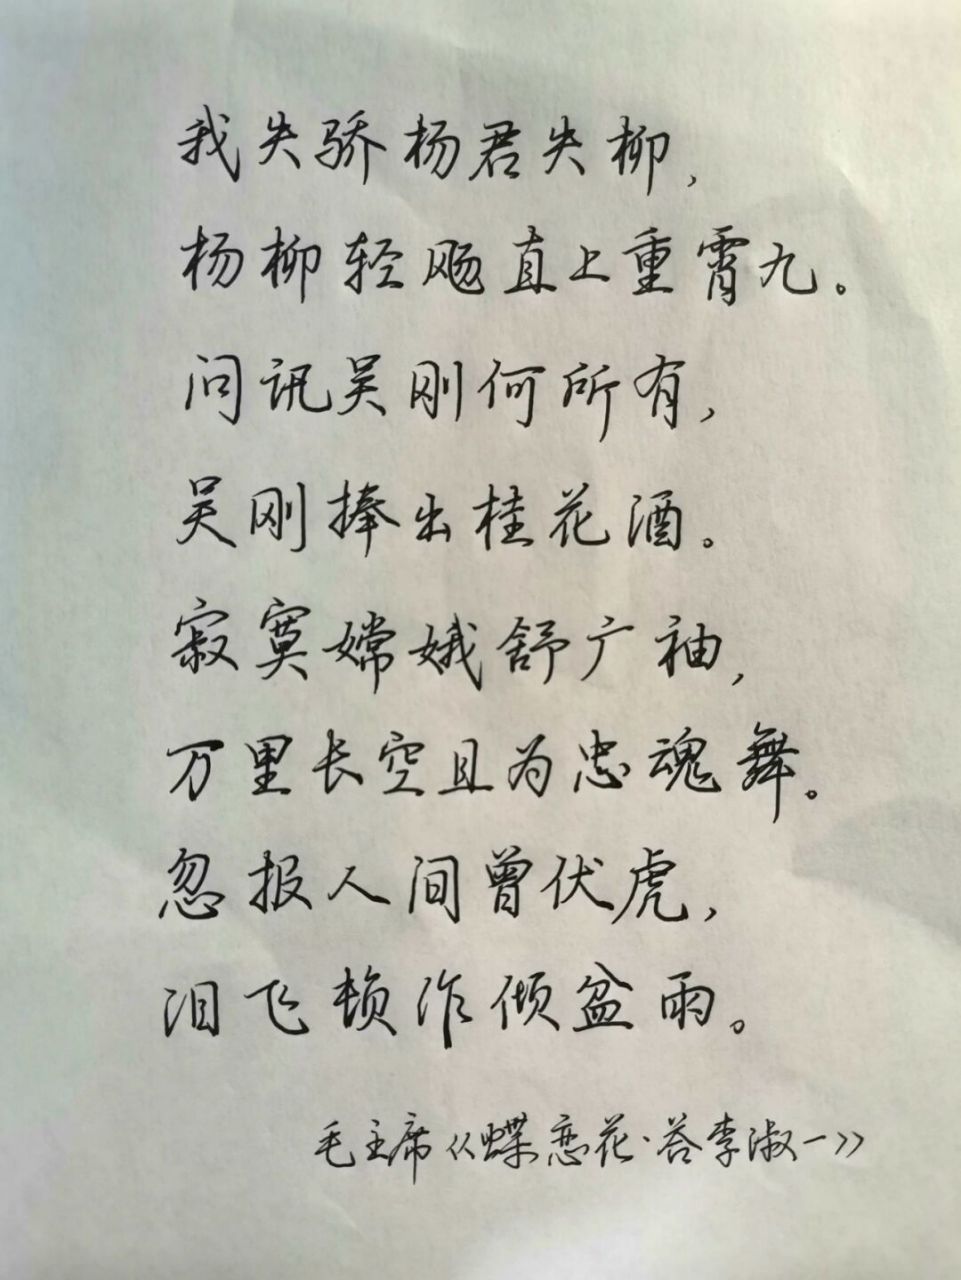 我失骄杨君失柳，
杨柳轻飏直上重霄九。
问讯吴刚何所有，
吴刚捧出桂花酒。
寂寞嫦娥舒广袖，
万里长空且为忠魂舞。
忽报人间曾伏虎，
泪飞顿作倾盆雨。
毛主席《蝶恋花·答李淑一》